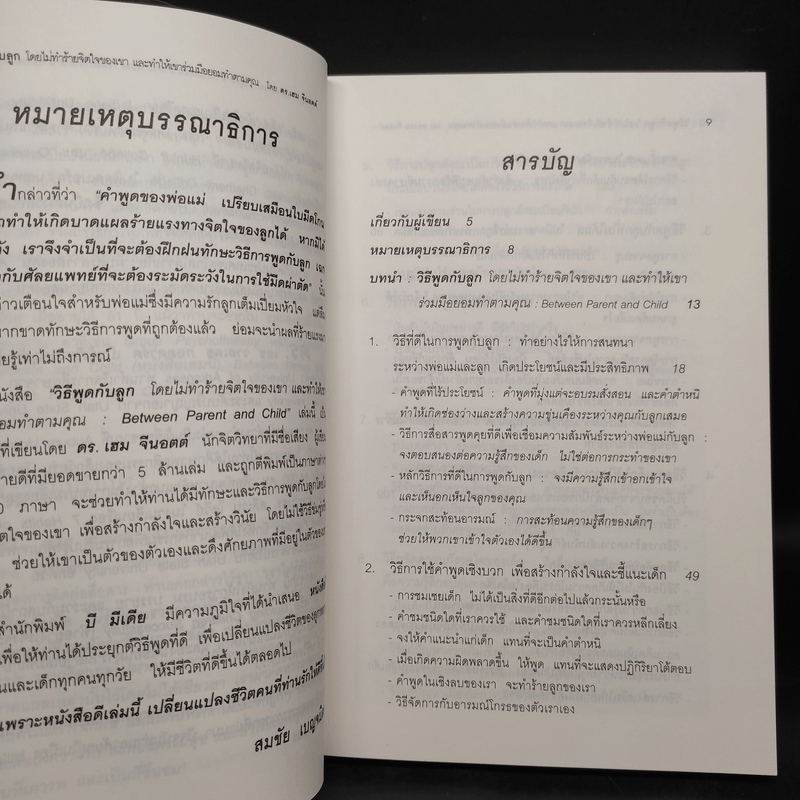 บลูก โดยไม่ทำร้ายจิตใจของเขา และทำให้เขาร่วมมือยอมทำตามคุณ โดย ดร.เฮม จีนอตต์
หมายเหตุบรรณาธิการ
กล่าวที่ว่า “คำพูดของพ่อแม่ เปรียบเสมือนใบมีดโกน
ทำให้เกิดบาดแผลร้ายแรงทางจิตใจของลูกได้ หากมิได้
เราจึงจำเป็นที่จะต้องฝึกฝนทักษะวิธีการพูดกับลูก
กับศัลยแพทย์ที่จะต้องระมัดระวังในการใช้มีดผ่าตัด”
าวเตือนใจสำหรับพ่อแม่ซึ่งมีความรักลูกเต็มเปี่ยมหัวใจ
ากขาดทักษะวิธีการพูดที่ถูกต้องแล้ว ย่อมจะนำผลที่ร้ายแรง
ยรู้เท่าไม่ถึงการณ์
นังสือ “วิธีพูดกับลูก โดยไม่ทำร้ายจิตใจของเขา และทำให้เขา
อมทำตามคุณ : Between Parent and Child” เล่มนี้
ที่เขียนโดย ดร. เฮม จีนอตต์ นักจิตวิทยาที่มีชื่อเสียง
ายดีที่มียอดขายกว่า 5 ล้านเล่ม และถูกตีพิมพ์เป็นภาษาต่าง
0 ภาษา จะช่วยทำให้ท่านได้มีทักษะและวิธีการพูดกับลูกโดย
ตใจของเขา เพื่อสร้างกำลังใจและสร้างวินัย โดยไม่ใช้วิธี
ช่วยให้เขาเป็นตัวของตัวเองและดึงศักยภาพที่มีอยู่ในตัวของ
ได้
สำนักพิมพ์ บี มีเดีย มีความภูมิใจที่ได้นำเสนอ
เพื่อให้ท่านได้ประยุกต์วิธีพูดที่ดี เพื่อเปลี่ยนแปลงชีวิตของ
นและเด็กทุกคนทุกวัย ให้มีชีวิตที่ดีขึ้นได้ตลอดไป
เพราะหนังสือดีเล่มนี้ เปลี่ยนแปลงชีวิตคนที่ท่านรัก
สมชัย
9
สารบัญ
เกี่ยวกับผู้เขียน 5
หมายเหตุบรรณาธิการ 8
บทนำ : วิธีพูดกับลูก โดยไม่ทำร้ายจิตใจของเขา และทำให้เขา
ร่วมมือยอมทำตามคุณ : Between Parent and Child 13
1. วิธีที่ดีในการพูดกับลูก : ทำอย่างไรให้การสนทนา
ระหว่างพ่อแม่และลูก เกิดประโยชน์และมีประสิทธิภาพ 18
- คำพูดที่ไร้ประโยชน์ : คำพูดที่มุ่งแต่จะอบรมสั่งสอน และคำตำหนิ
ทำให้เกิดช่องว่างและสร้างความขุ่นเคืองระหว่างคุณกับลูกเสมอ
- วิธีการสื่อสารพูดคุยที่ดีเพื่อเชื่อมความสัมพันธ์ระหว่างพ่อแม่กับลูก :
จงตอบสนองต่อความรู้สึกของเด็ก ไม่ใช่ต่อการกระทำของเขา
- หลักวิธีการที่ดีในการพูดกับลูก : จงมีความรู้สึกเข้าอกเข้าใจ
และเห็นอกเห็นใจลูกของคุณ
- กระจกสะท้อนอารมณ์ : การสะท้อนความรู้สึกของเด็กๆ
ช่วยให้พวกเขาเข้าใจตัวเองได้ดีขึ้น
2. วิธีการใช้คำพูดเชิงบวก เพื่อสร้างกำลังใจและชี้แนะเด็ก 49
- การชมเชยเด็ก ไม่ได้เป็นสิ่งที่ดีอีกต่อไปแล้วกระนั้นหรือ
- คำชมชนิดใดที่เราควรใช้ และคำชมชนิดใดที่เราควรหลีกเลี่ยง
- จงให้คำแนะนำแก่เด็ก แทนที่จะเป็นคำตำหนิ
- เมื่อเกิดความผิดพลาดขึ้น ให้พูด แทนที่จะแสดงปฏิกิริยาโต้ตอบ
- คำพูดในเชิงลบของเรา จะทำร้ายลูกของเรา
- วิธีจัดการกับอารมณ์โกรธของตัวเราเอง